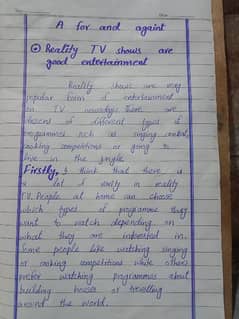 A for and againt
Reality TV shows are
good entertainment
Reality shows are very
popular form of entertainment
on TV nowadays There are
dozens of different types of
programmes such as singing contest,
cooking competitions or going to
live in the jungle
Firstly, I think that there is
a lot of variety in reality
TV. People at home can choose
which types of programme they
want to watch depending on
what they are interested in.
Some people like watching singing
or cooking competitions while others
prefer watching programmes about
building houses or travelling
around the world.